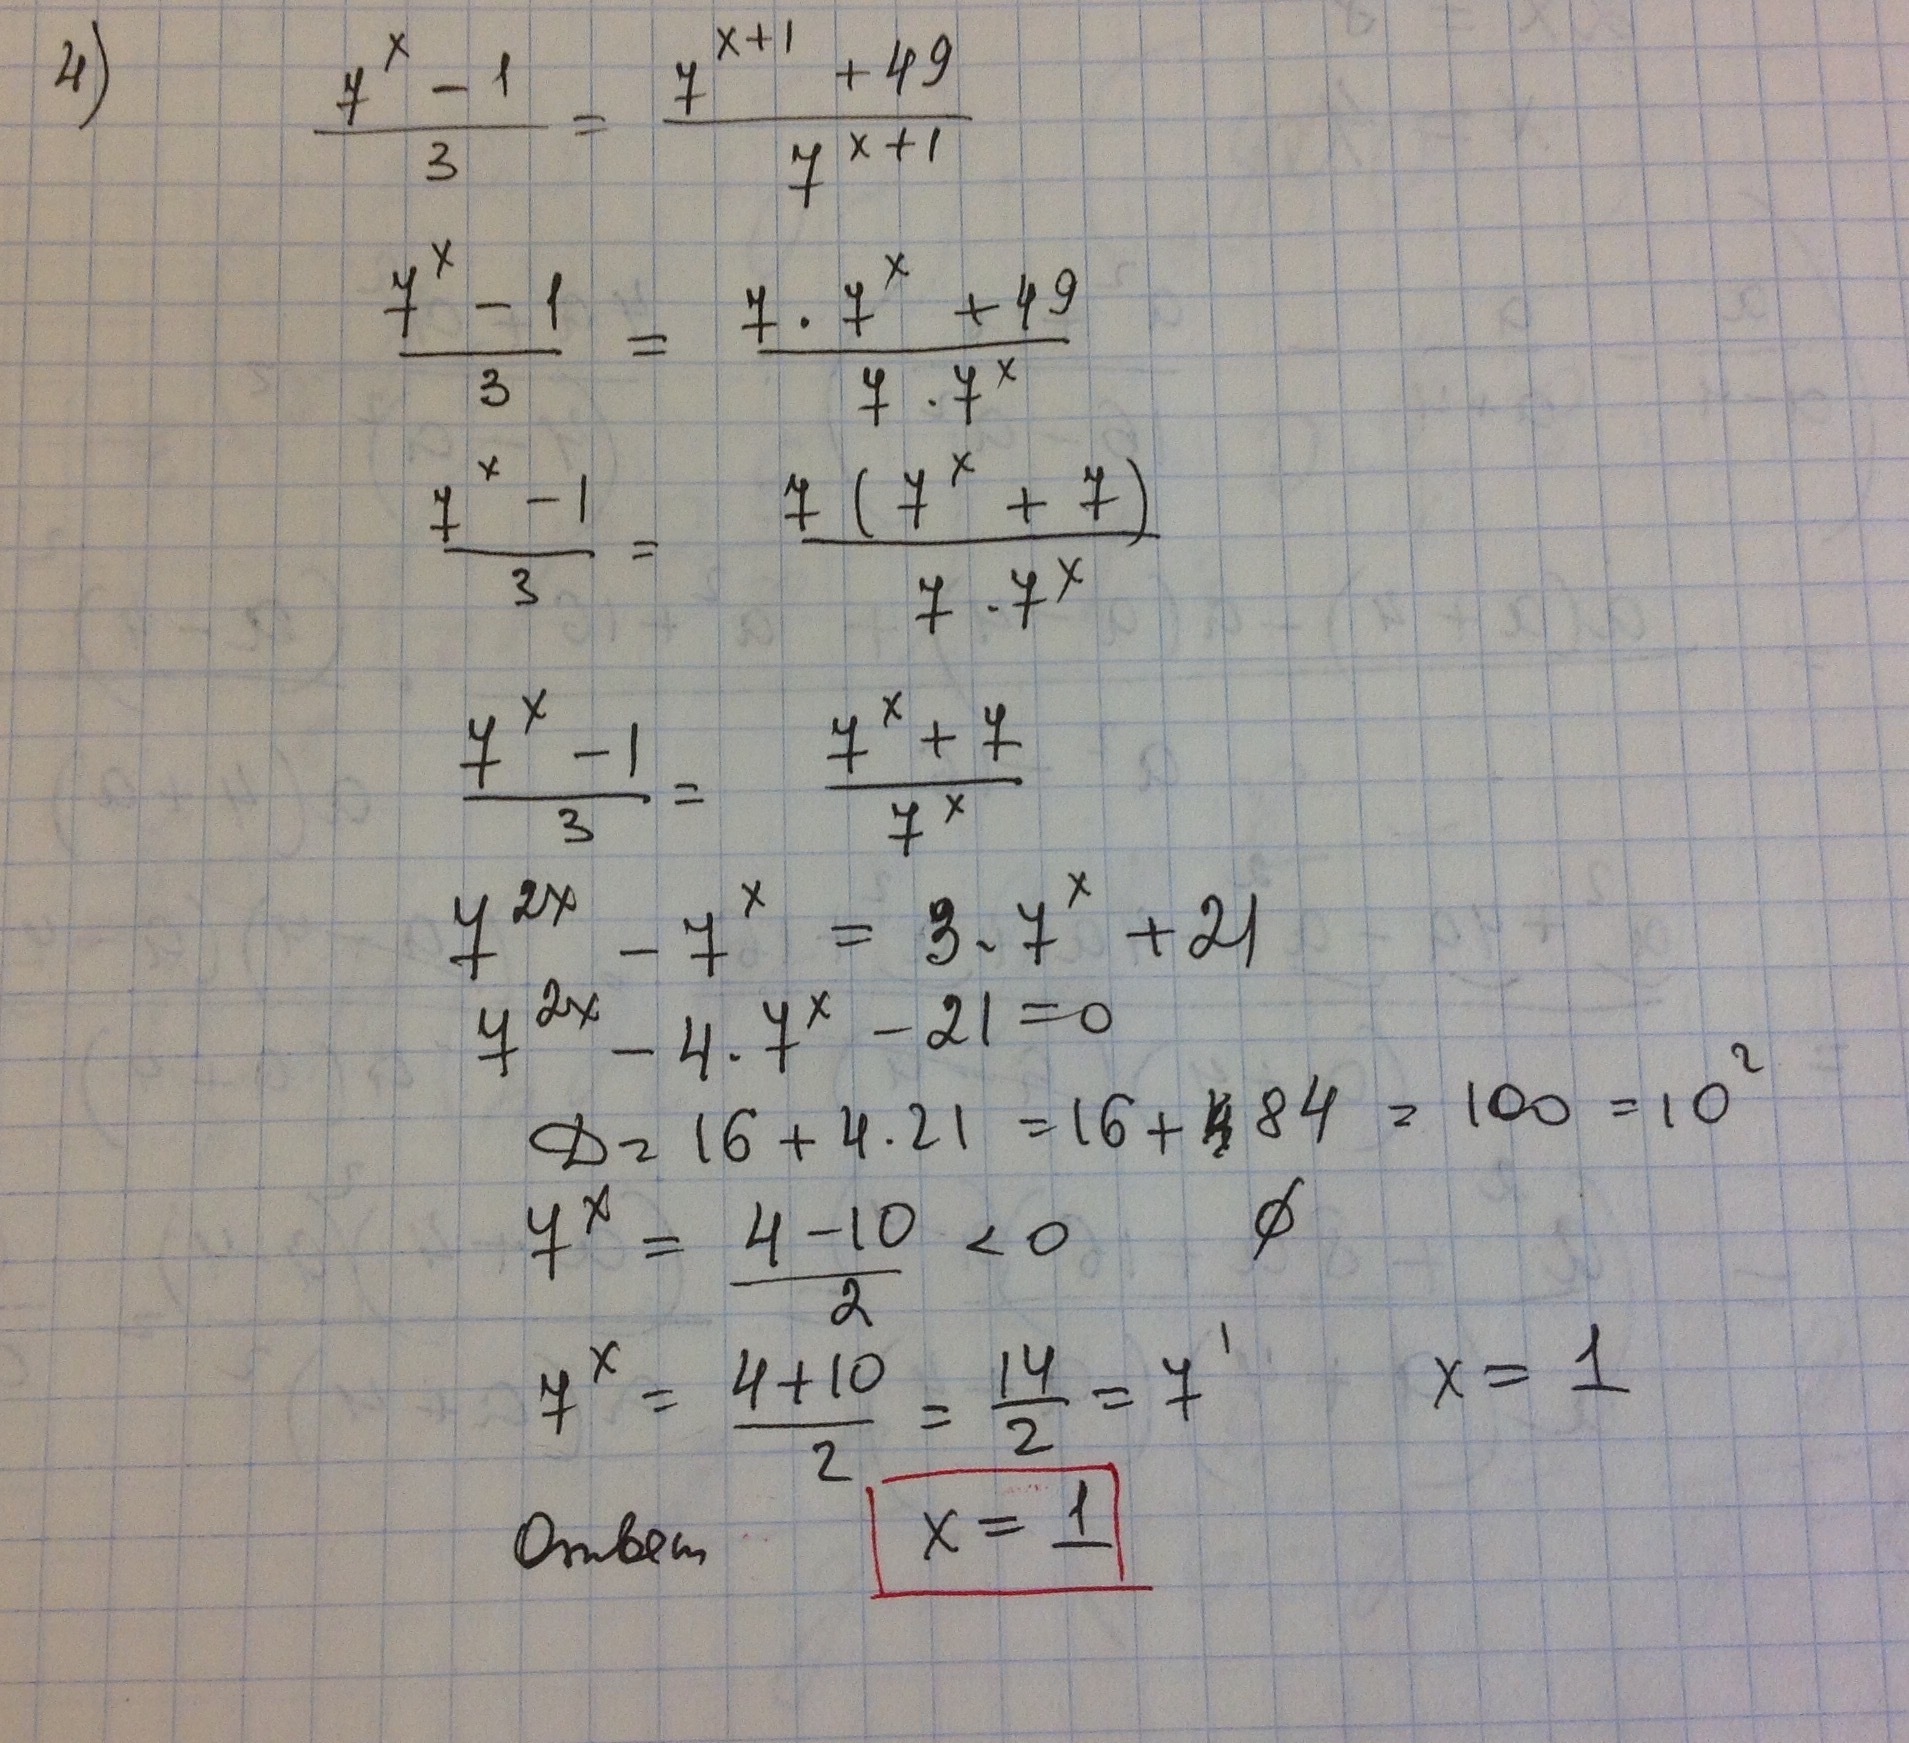 4) (7^x - 1)/3 = (7^(x+1) + 49)/7^(x+1)
(7^x - 1)/3 = (7 · 7^x + 49)/(7 · 7^x)
(7^x - 1)/3 = 7(7^x + 7)/(7 · 7^x)
(7^x - 1)/3 = (7^x + 7)/7^x
7^(2x) - 7^x = 3 · 7^x + 21
7^(2x) - 4 · 7^x - 21 = 0
D = 16 + 4 · 21 = 16 + 84 = 100 = 10^2
7^x = (4 - 10)/2 < 0 ∅
7^x = (4 + 10)/2 = 14/2 = 7^1 x = 1
Ответ x = 1